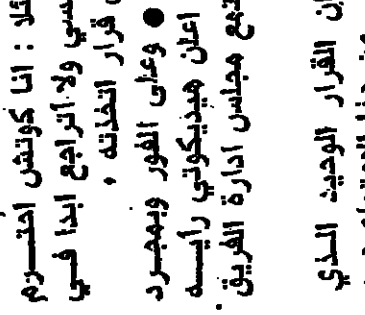 ئلا : انا كوتش احتـــرم
سي ولا اتراجع ابدا فـــي
قرار اتخذته .
● وعلى الفور وبمجـــرد
اعلن ميديكوتي رأيـــه
تمع مجلس ادارة الفريق
ن القرار الوحيد الـــذي